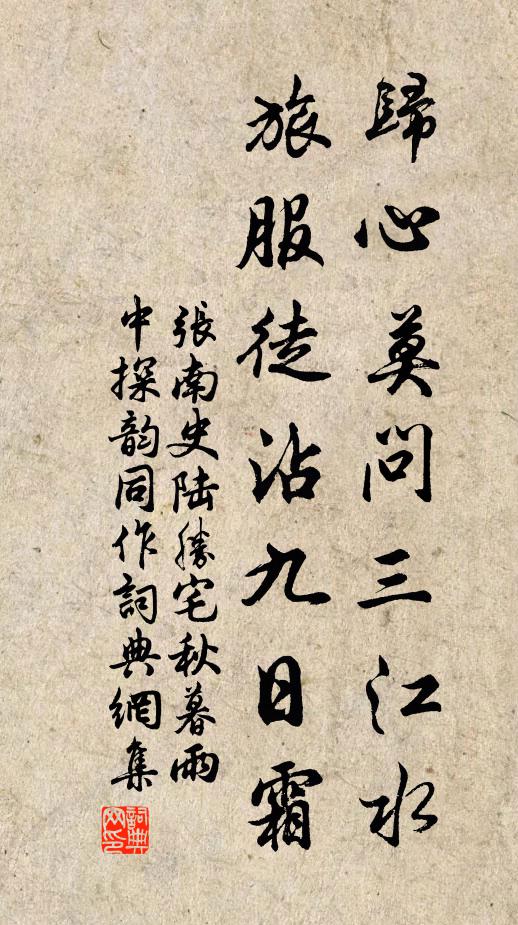 歸心莫問三江水
旅服徒沾九日霜
張南史陆勝宅秋暮雨
中探韵同作詞典網集
詞典網印